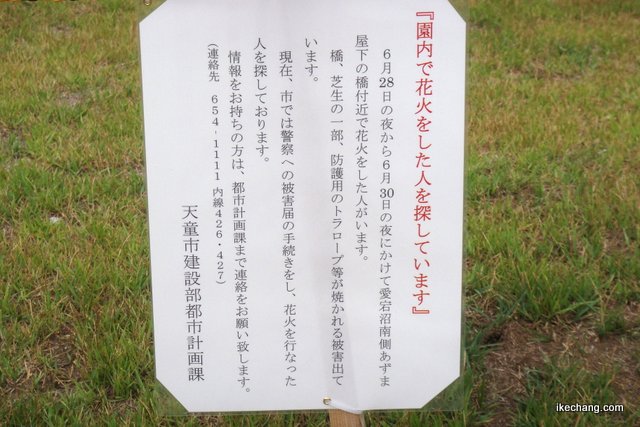 『園内で花火をした人を探しています』
6月28日の夜から6月30日の夜にかけて愛宕沼南側あずま
屋下の橋付近で花火をした人がいます。
橋、芝生の一部、防護用のトラロープ等が焼かれる被害出て
います。
現在、市では警察への被害届の手続きをし、花火を行なった
人を探しております。
情報をお持ちの方は、都市計画課まで連絡をお願い致します。
（連絡先　654-1111 内線426・427）
天童市建設部都市計画課
ikechang.com